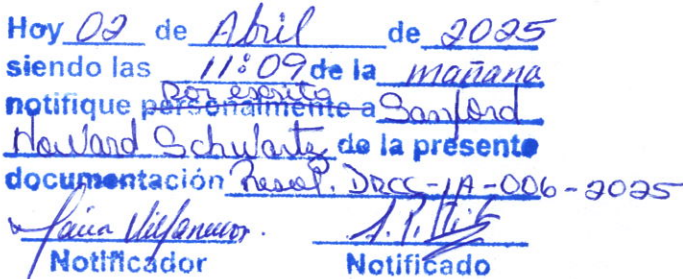 Hoy 02 de Abril de 2025
siendo las 11:09 de la mañana
Por escrito
notifique personalmente a Sanford
Howard Schwartz de la presente
documentación Resol. DRCC-IA-006-2025
Notificador Notificado